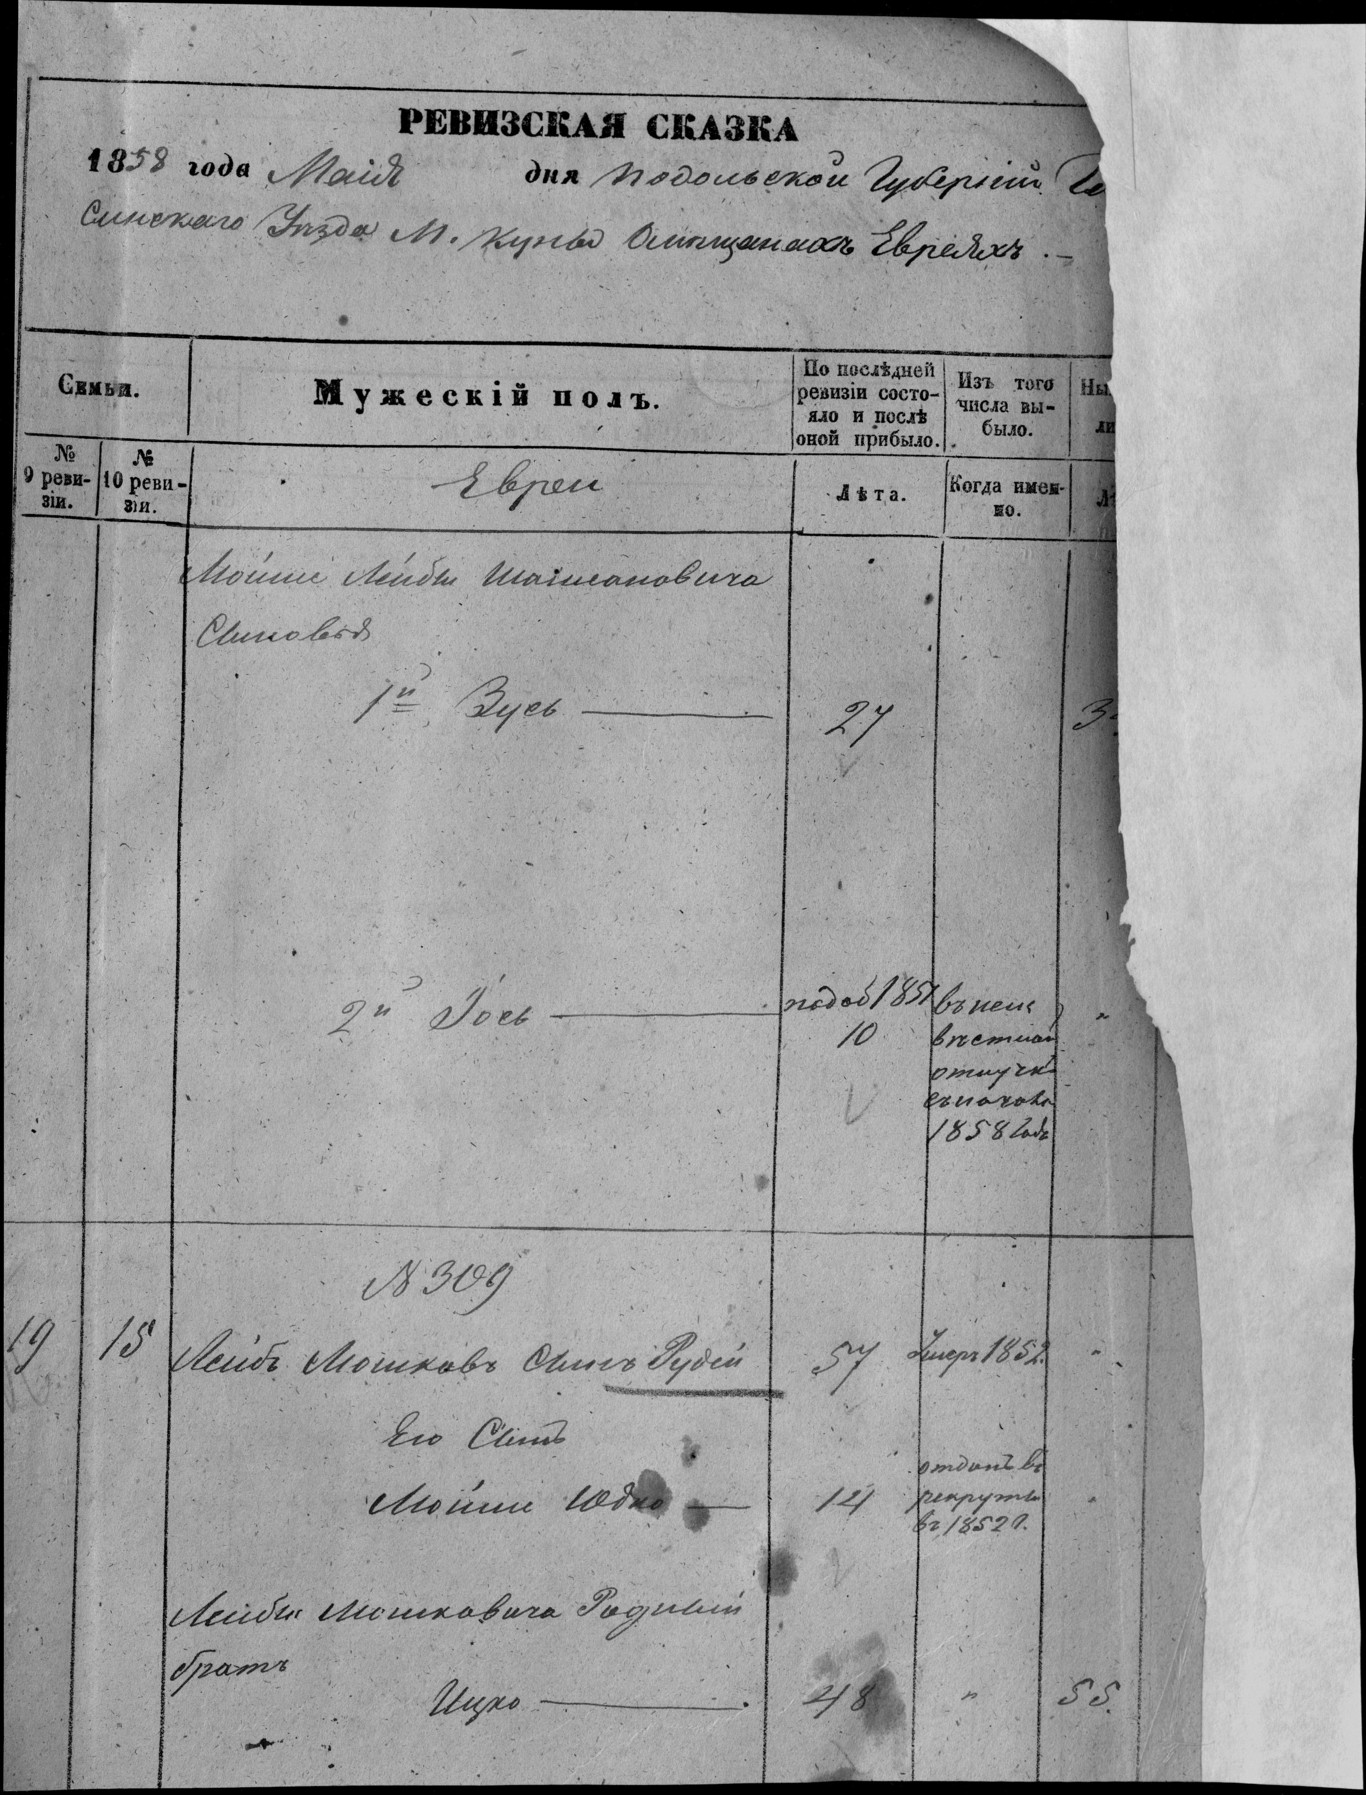 РЕВИЗСКАЯ СКАЗКА
1858 года Маія дня Подольской Губерніи Га
синскаго Уѣзда М. Кунье Омѣщанахъ Евреяхъ. –
Семьи.
Мужескій полъ.
По послѣдней
ревизіи состо-
яло и послѣ
оной прибыло.
Изъ того
числа вы-
было.
Ны
ли
№
9 реви-
зіи.
№
10 реви-
зіи.
Евреи
Лѣта.
Когда имен-
но.
Мойши Лейбы
Синовья
1й Зусь — 27
2й Іось —
10
въ неиз
вѣстной
отлучкѣ
съ
1858 года
№ 309
19 15 Лейбъ Мошковъ Синъ Рудой 57 Умеръ 1852. "
Его Синъ
Мойше Юдко — 14 отданъ въ
рекруты
въ 1852 г. "
Лейбы Мошковича Родный
братъ
Ицко — 48 " 55.